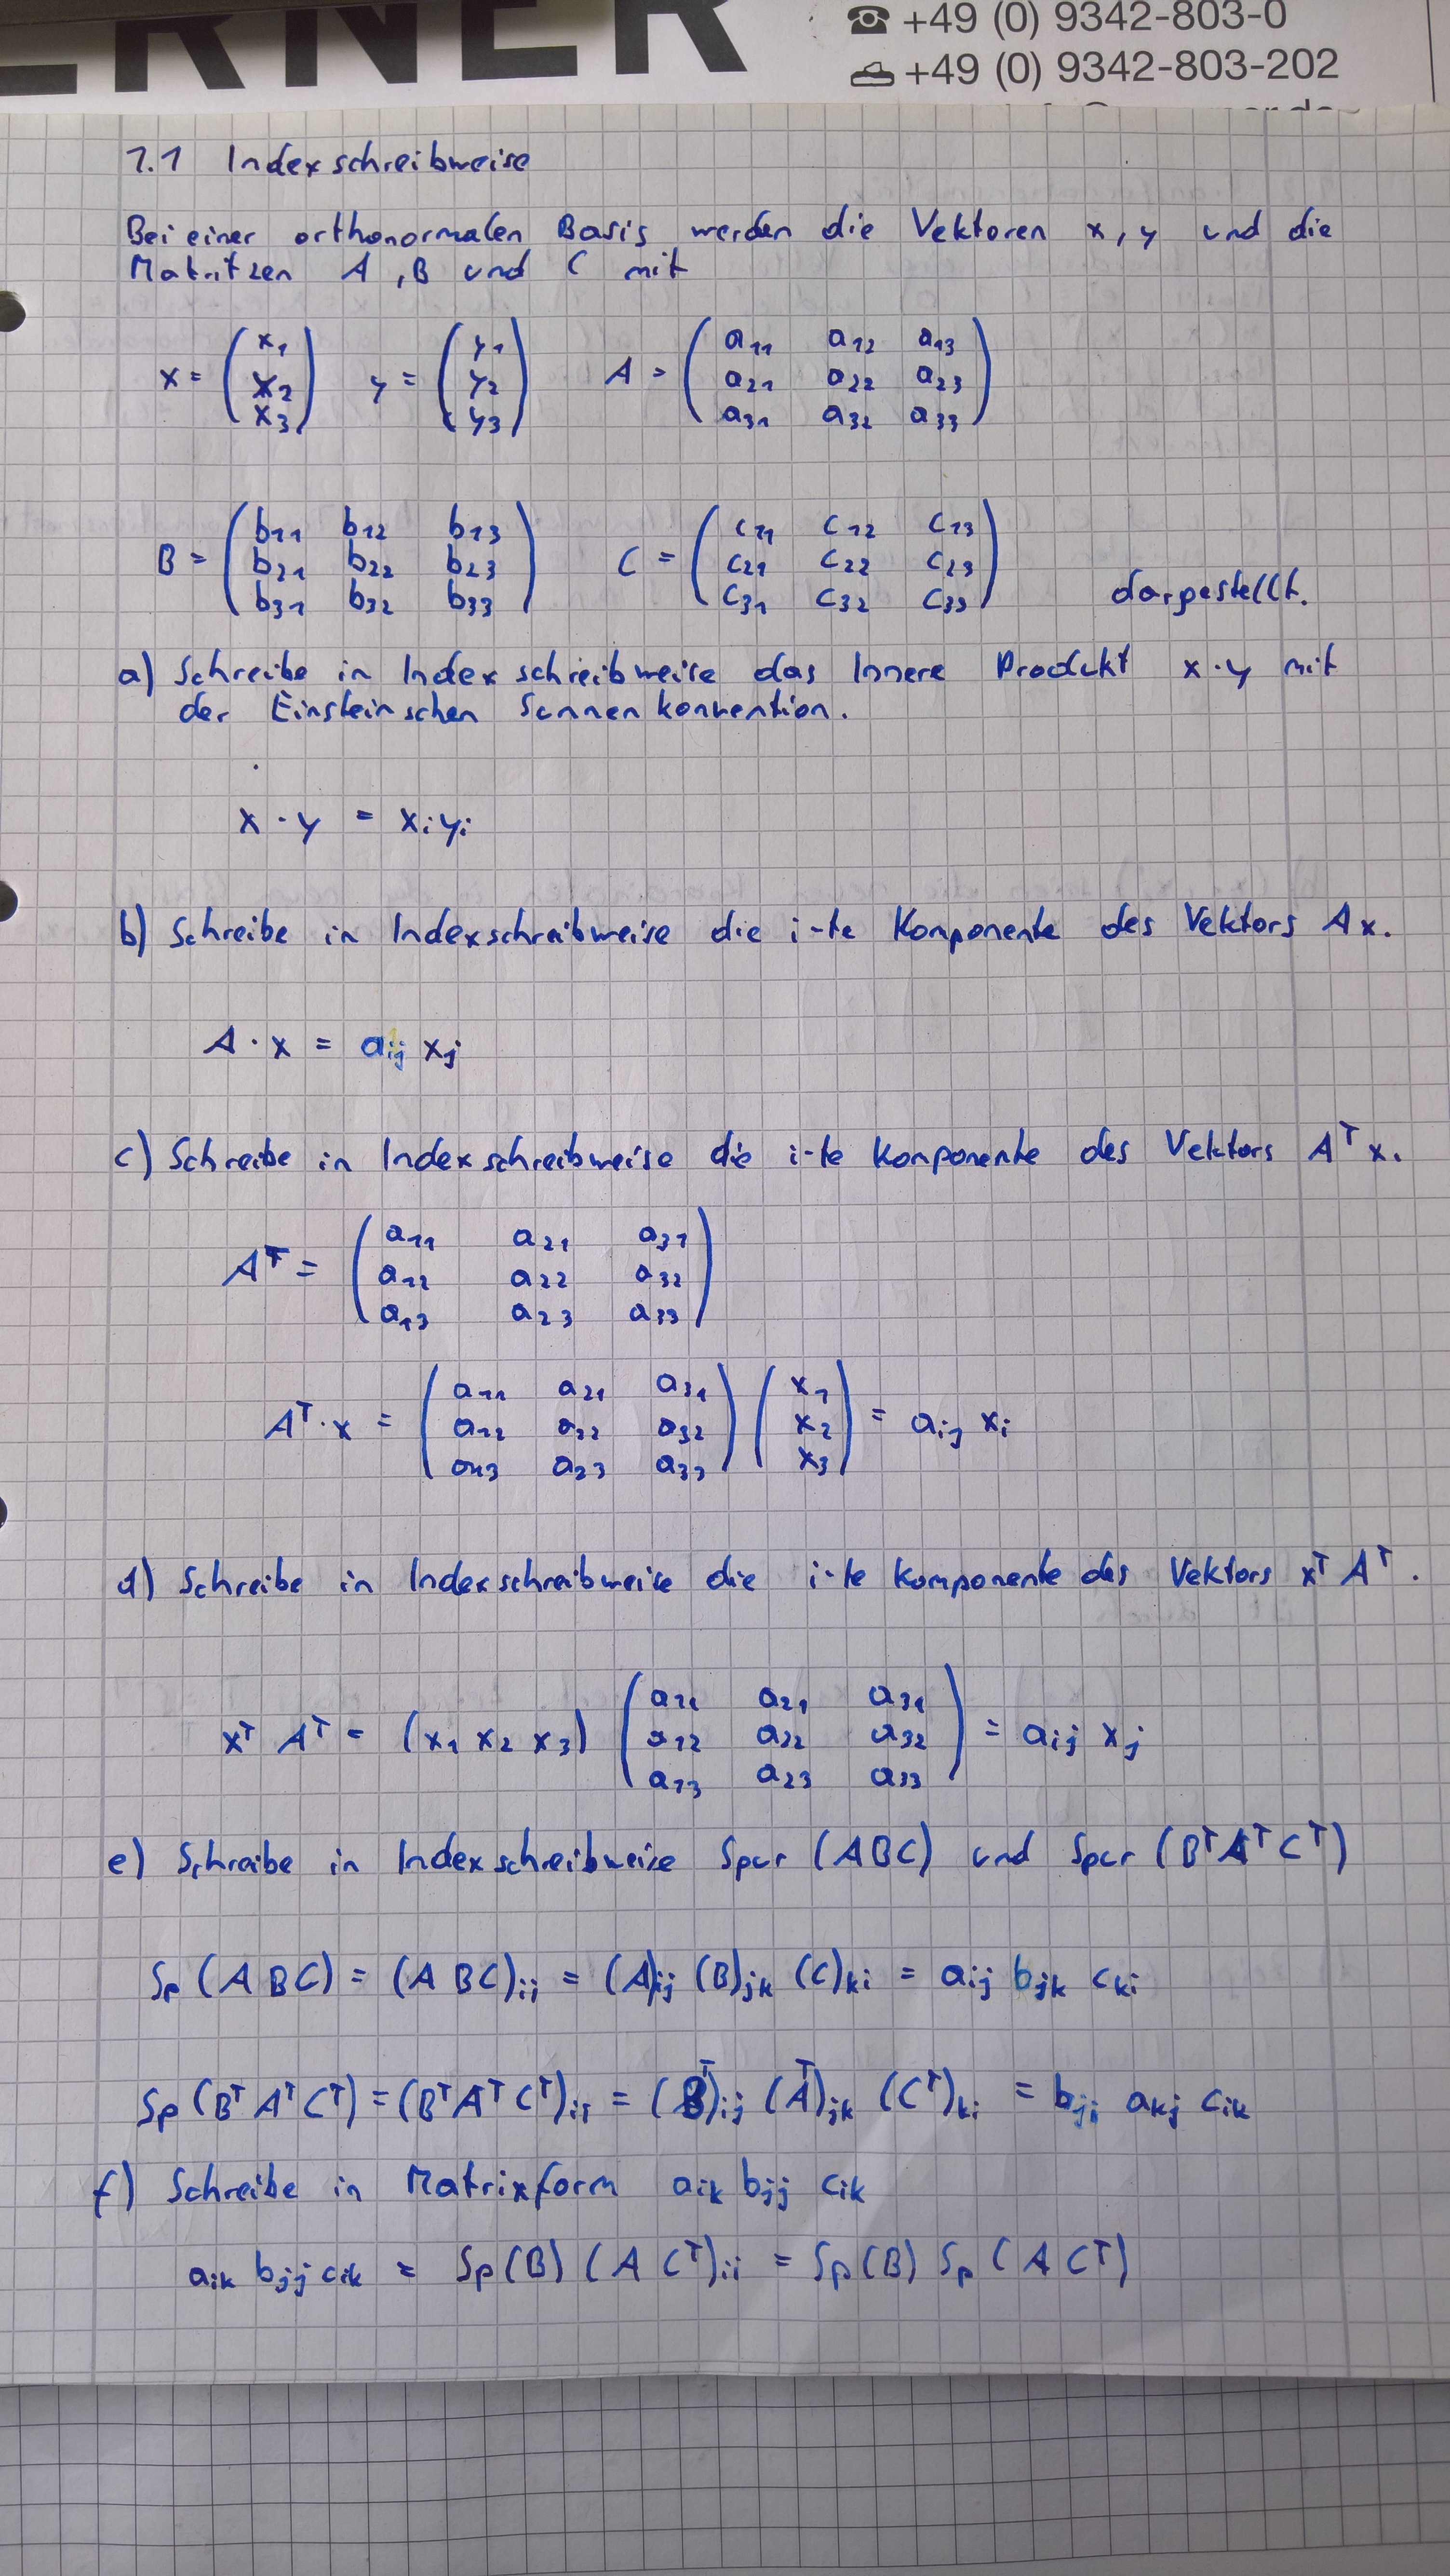 ERNER
☎ +49 (0) 9342-803-0
+49 (0) 9342-803-202
1.1 Indexschreibweise
Bei einer orthonormalen Basis werden die Vektoren x, y und die
Matritzen A, B und C mit
x = (x₁ x₂ x₃) y = (y₁ y₂ y₃) A = (a₁₁ a₁₂ a₁₃ a₂₁ a₂₂ a₂₃ a₃₁ a₃₂ a₃₃)
B = (b₁₁ b₁₂ b₁₃ b₂₁ b₂₂ b₂₃ b₃₁ b₃₂ b₃₃) C = (c₁₁ c₁₂ c₁₃ c₂₁ c₂₂ c₂₃ c₃₁ c₃₂ c₃₃) dargestellt.
a) Schreibe in Indexschreibweise das Innere Produkt x · y mit
der Einsteinschen Summenkonvention.
x · y = xᵢyᵢ
b) Schreibe in Indexschreibweise die i-te Komponente des Vektors Ax.
A · x = aᵢⱼ xⱼ
c) Schreibe in Indexschreibweise die i-te Komponente des Vektors Aᵀx.
Aᵀ = (a₁₁ a₂₁ a₃₁ a₁₂ a₂₂ a₃₂ a₁₃ a₂₃ a₃₃)
Aᵀ · x = (a₁₁ a₂₁ a₃₁ a₁₂ a₂₂ a₃₂ a₁₃ a₂₃ a₃₃) (x₁ x₂ x₃) = aᵢⱼ xᵢ
d) Schreibe in Indexschreibweise die i-te Komponente des Vektors xᵀ Aᵀ.
xᵀ Aᵀ = (x₁ x₂ x₃) (a₁₁ a₂₁ a₃₁ a₁₂ a₂₂ a₃₂ a₁₃ a₂₃ a₃₃) = aᵢⱼ xⱼ
e) Schreibe in Indexschreibweise Spur (ABC) und Spur (BᵀAᵀCᵀ)
Sp (ABC) = (ABC)ᵢᵢ = (A)ᵢⱼ (B)ⱼₖ (C)ₖᵢ = aᵢⱼ bⱼₖ cₖᵢ
Sp (BᵀAᵀCᵀ) = (BᵀAᵀCᵀ)ᵢᵢ = (Bᵀ)ᵢⱼ (Aᵀ)ⱼₖ (Cᵀ)ₖᵢ = bⱼᵢ aₖⱼ cᵢₖ
f) Schreibe in Matrixform aᵢₖ bⱼⱼ cᵢₖ
aᵢₖ bⱼⱼ cᵢₖ = Sp(B) (A Cᵀ)ᵢᵢ = Sp(B) Sp (A Cᵀ)